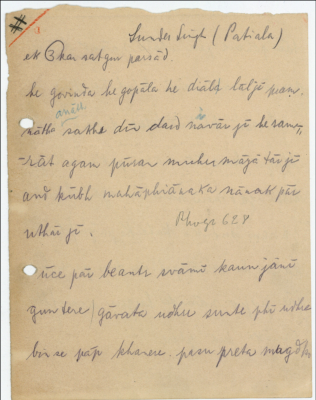 # a
Sunder Singh (Patiala)
ek 3 kar satgur parsād.
he govinda he gopāla he diāla lāljī prān.
anāth
nātha sakhe dīn dard navār jī he samr,
-rāth agam pūran muhe, māyā tār jī
and kūbh mahā bhiānaka nānak pār
uthār jī.
Bhogs 628
ūce pār beant svāmī kaun jāne
gun tere) gāvata udhre sunte phī udhre
binse pāp khanere. pasu preta mugdh